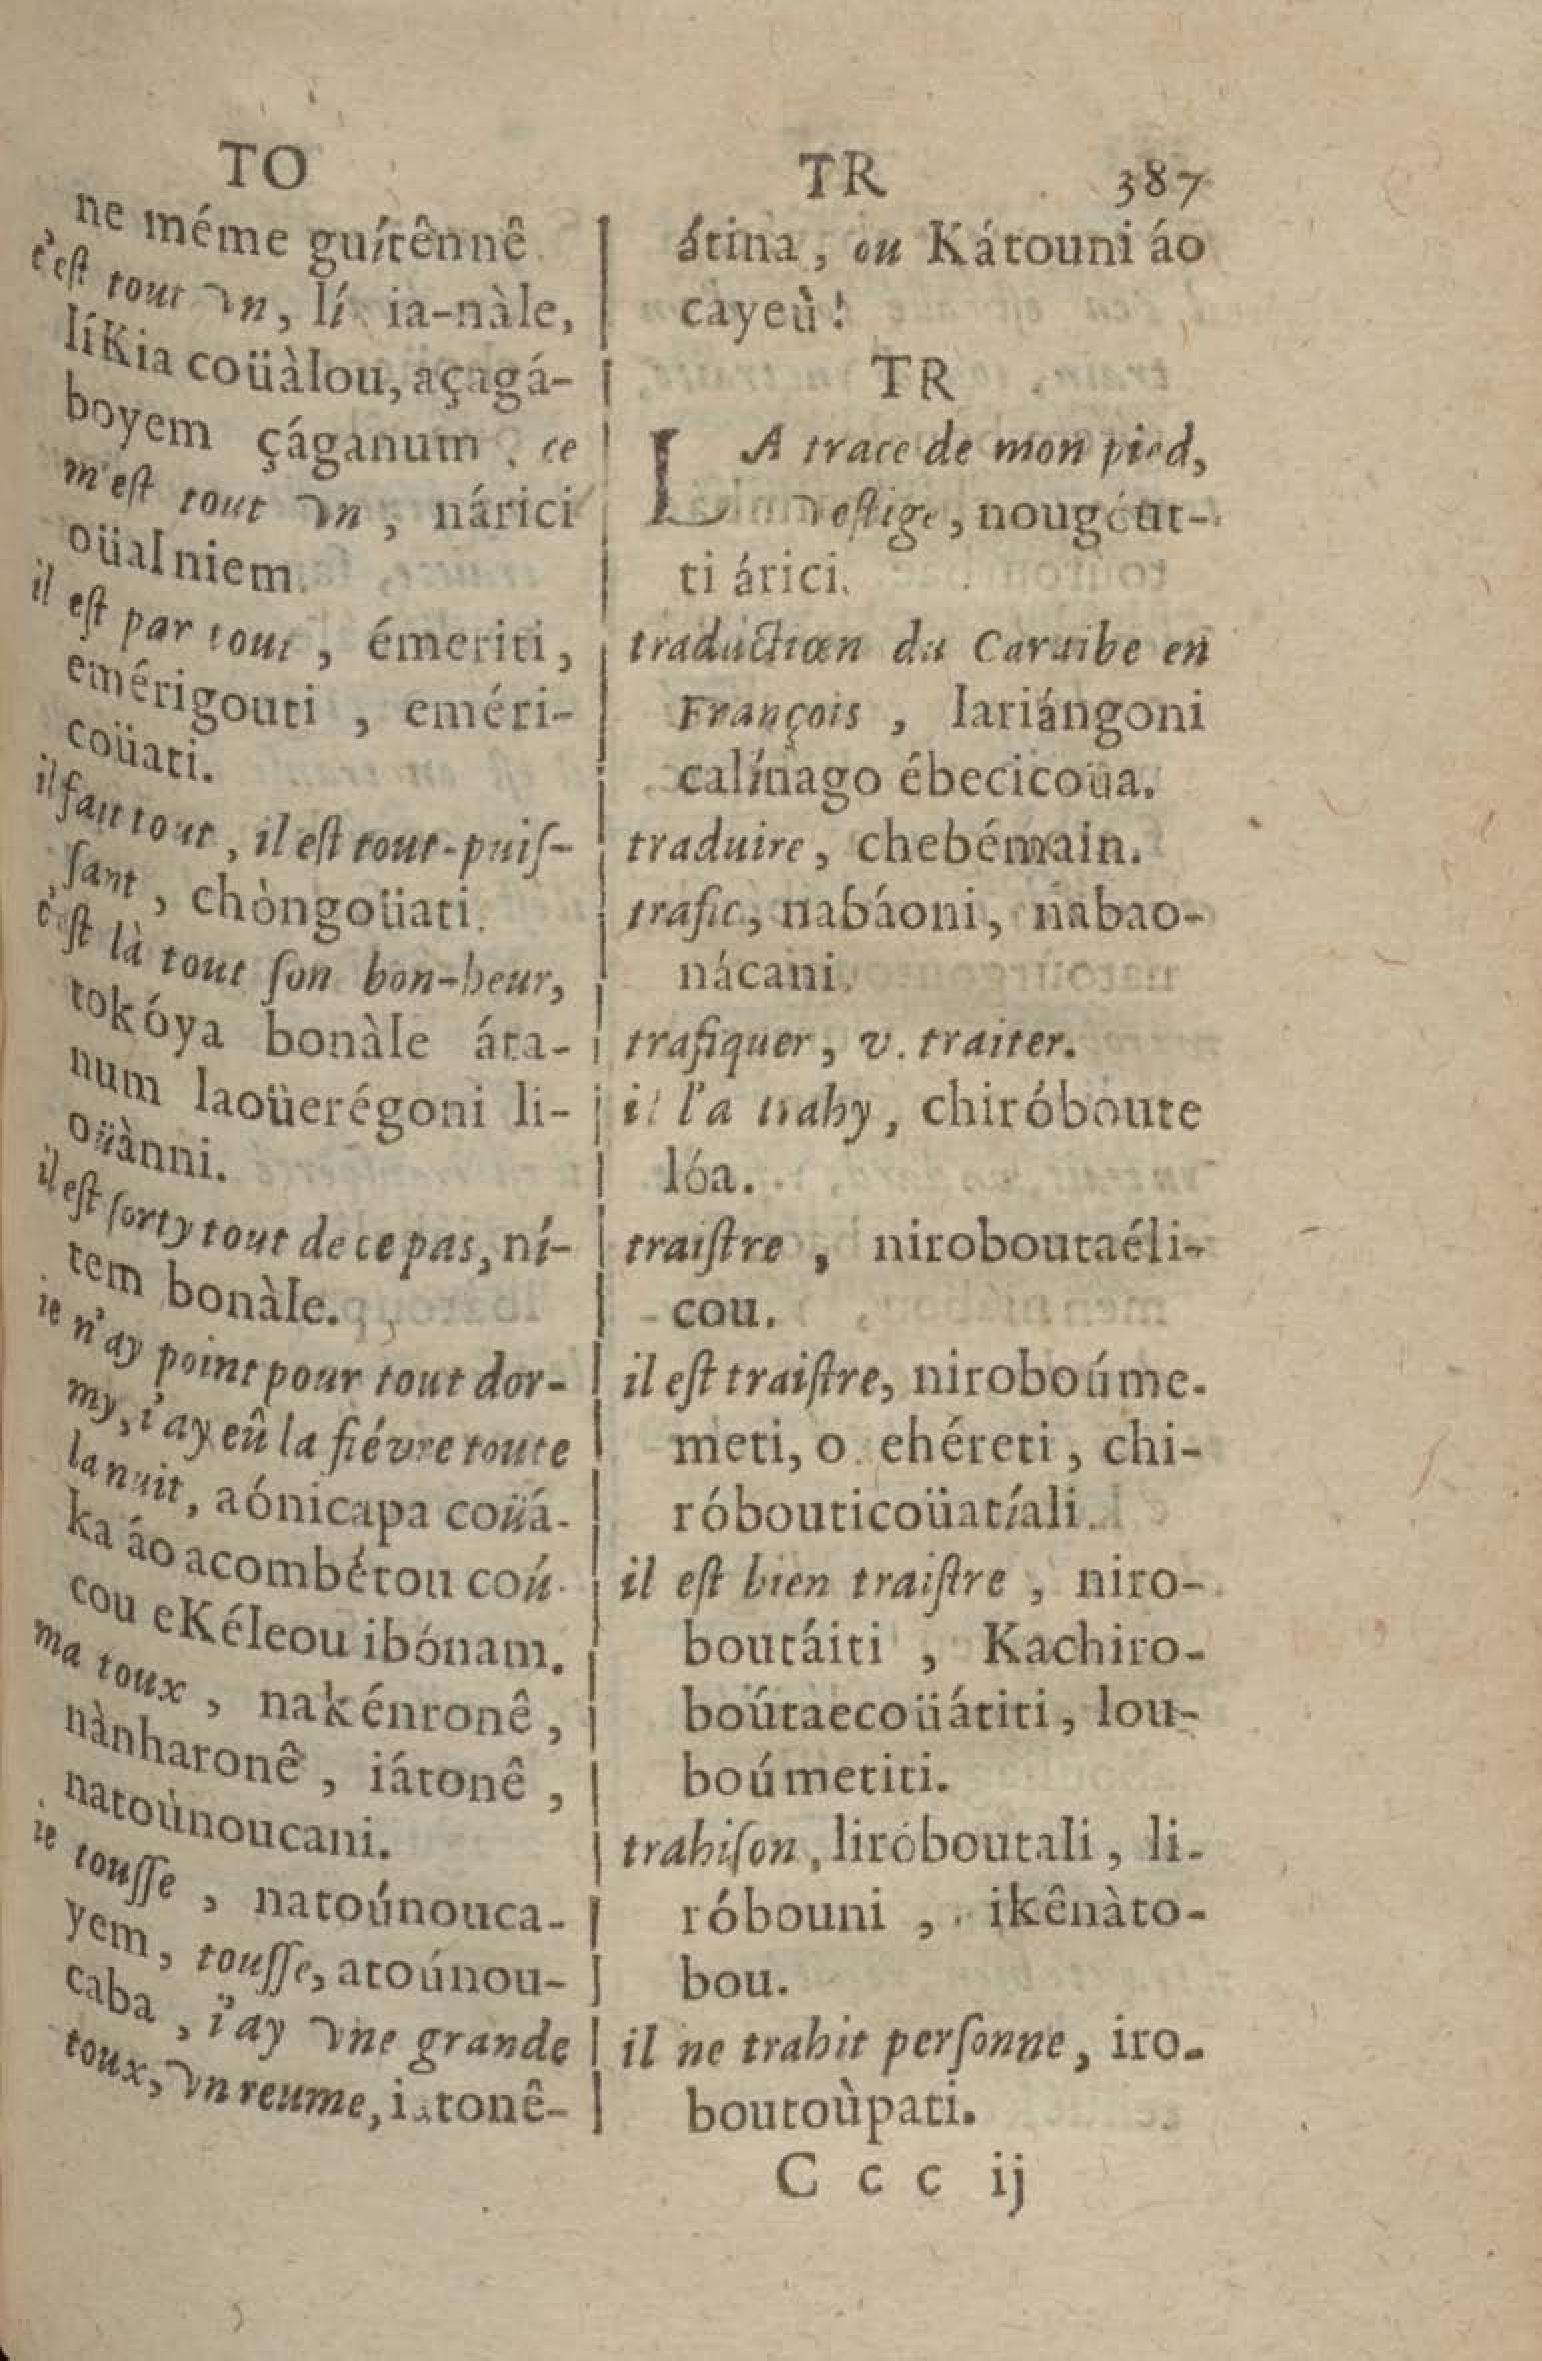 TO
ne méme guítênnê
c'est tout vn, lí ia-nàle,
líKia coüàlou, açagá-
boyem çáganum, ce
m'est tout vn, nárici
oüalniem.
il est par tout, émeriti,
emérigouti, eméri-
coüati.
il fait tout, il est tout-puis-
sant, chòngoüati.
c'est là tout son bon-heur,
tokóya bonàle áta-
num laoüerégoni li-
oüànni.
il est sorty tout de ce pas, ní-
tem bonàle.
ie n'ay point pour tout dor-
my, i'ay eû la fiévre toute
la nuit, aónicapa coüá-
ka áo acombétou coú-
cou eKéleou ibónam.
ma toux, nakénronê,
nànharonê, iátonê,
natoùnoucani.
ie tousse, natoúnouca-
yem, tousse, atoúnou-
caba, i'ay vne grande
toux, vn reume, iatonê-
TR 387
átina, ou Kátouni áo
cayeù!
TR
LA trace de mon pied,
vestige, nougóut-
ti árici.
traduction du Caraibe en
François, Iariángoni
calínago ébecicoüa.
traduire, chebémain.
trafic, nabáoni, nabao-
nácani.
trafiquer, v. traiter.
il l'a trahy, chiróboute
lóa.
traistre, niroboutaéli-
cou.
il est traistre, niroboúme-
meti, o ehéreti, chi-
róbouticoüatíali.
il est bien traistre, niro-
boutáiti, Kachiro-
boútaecoüátiti, lou-
boúmetiti.
trahison, liróboutali, li-
róbouni, ikênàto-
bou.
il ne trahit personne, iro-
boutoùpati.
C c c ij